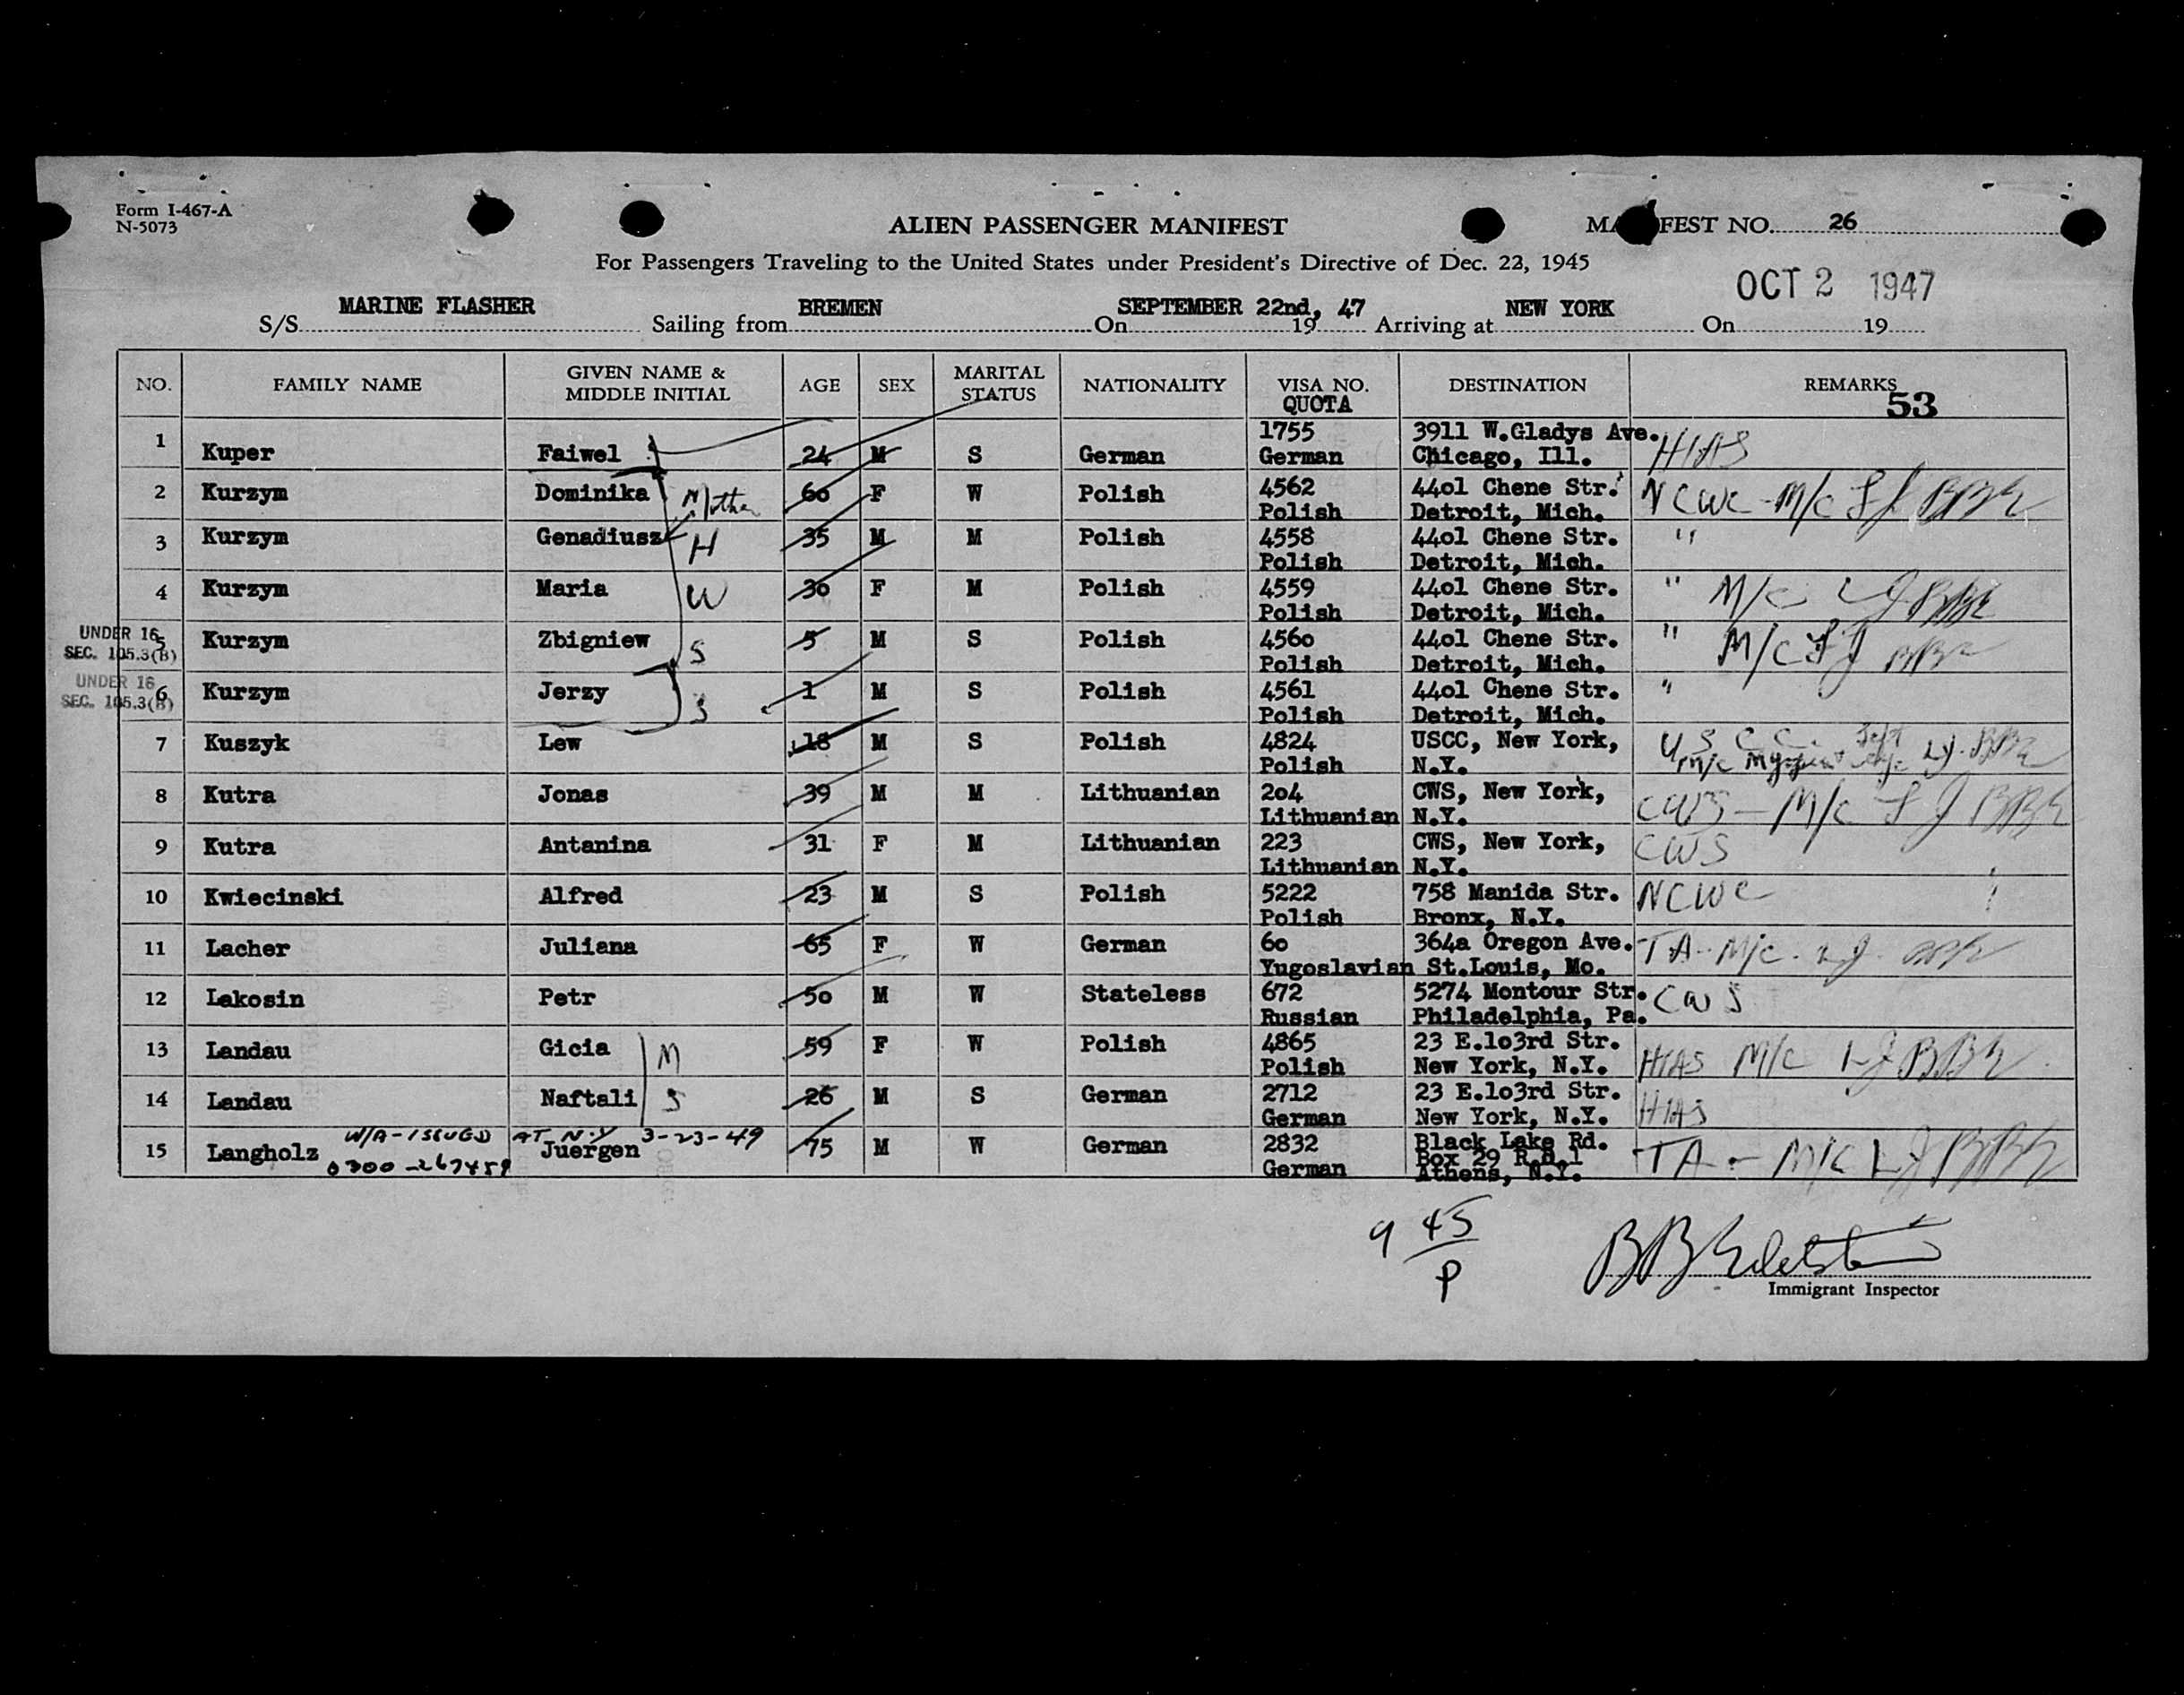 Form I-467-A
N-5073
ALIEN PASSENGER MANIFEST
MA FEST NO. 26
For Passengers Traveling to the United States under President's Directive of Dec. 22, 1945
OCT 2 1947
S/S MARINE FLASHER Sailing from BREMEN On SEPTEMBER 22nd, 1947 Arriving at NEW YORK On 19
NO. FAMILY NAME GIVEN NAME & MIDDLE INITIAL AGE SEX MARITAL STATUS NATIONALITY VISA NO. QUOTA DESTINATION REMARKS
53
1 Kuper Faiwel 24 M S German 1755 German 3911 W.Gladys Ave. Chicago, Ill. HIAS
2 Kurzym Dominika Mother 60 F W Polish 4562 Polish 44o1 Chene Str. Detroit, Mich. NCWC - M/C LJ BBE
3 Kurzym Genadiusz H 35 M M Polish 4558 Polish 44o1 Chene Str. Detroit, Mich. "
4 Kurzym Maria W 3o F M Polish 4559 Polish 44o1 Chene Str. Detroit, Mich. " M/C LJ BBE
UNDER 16
SEC. 105.3(B)
5 Kurzym Zbigniew S 5 M S Polish 456o Polish 44o1 Chene Str. Detroit, Mich. " M/C LJ BBE
UNDER 16
SEC. 105.3(B)
6 Kurzym Jerzy S 1 M S Polish 4561 Polish 44o1 Chene Str. Detroit, Mich. "
7 Kuszyk Lew 18 M S Polish 4824 Polish USCC, New York, N.Y. U S C C. M/C LJ. BBE
8 Kutra Jonas 39 M M Lithuanian 2o4 Lithuanian CWS, New York, N.Y. CWS - M/C LJ BBE
9 Kutra Antanina 31 F M Lithuanian 223 Lithuanian CWS, New York, N.Y. CWS
10 Kwiecinski Alfred 23 M S Polish 5222 Polish 758 Manida Str. Bronx, N.Y. NCWC
11 Lacher Juliana 65 F W German 6o Yugoslavian 364a Oregon Ave. St.Louis, Mo. TA - M/C. LJ. BBE
12 Lakosin Petr 5o M W Stateless 672 Russian 5274 Montour Str. Philadelphia, Pa. CWS
13 Landau Gicia M 59 F W Polish 4865 Polish 23 E.1o3rd Str. New York, N.Y. HIAS M/C LJ BBE
14 Landau Naftali S 26 M S German 2712 German 23 E.1o3rd Str. New York, N.Y. HIAS
W/A - ISSUED AT N.Y 3-23-49
15 Langholz Juergen 75 M W German 2832 German Black Lake Rd. Box 29 R.d.1 Athens, N.Y. TA - M/C LJ BBE
0300-267459
9 45/P
BB Edelstein
Immigrant Inspector